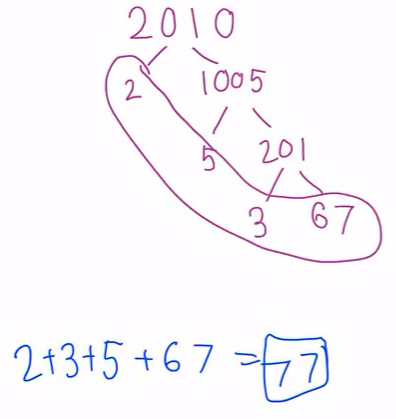 2010
2 1005
5 201
3 67
2+3+5+67=77